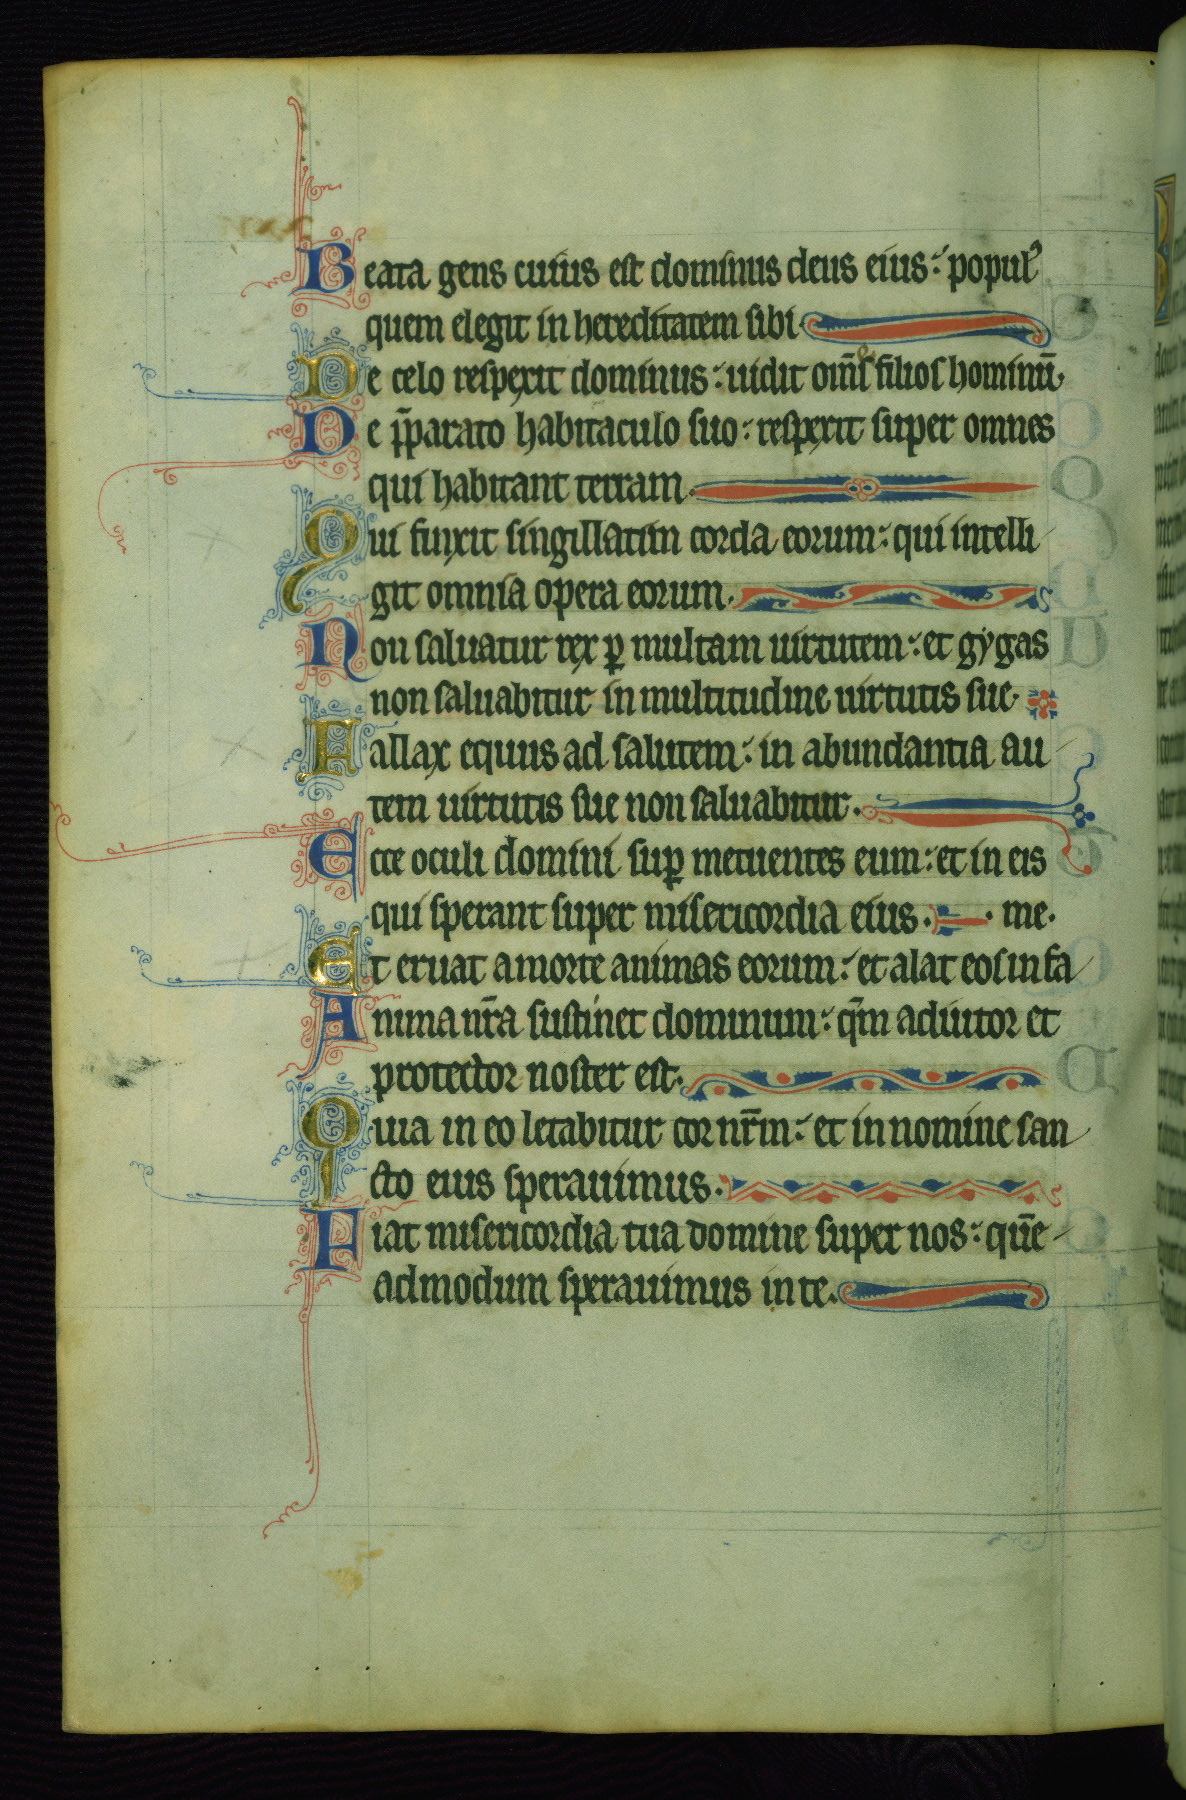 Beata gens cuius est dominus deus eius: popul᷒
quem elegit in hereditatem sibi.
De celo respexit dominus: uidit om̄s filios hominū.
De p̄parato habitaculo suo: respexit super omnes
qui habitant terram.
Qui finxit singillatim corda eorum: qui intelli
git omnia opera eorum.
Non saluatur rex ꝑ multam uirtutem: et gygas
non saluabitur in multitudine uirtutis sue.
Fallax equus ad salutem: in abundantia au
tem uirtutis sue non saluabitur.
Ecce oculi domini suꝑ metuentes eum: et in eis
qui sperant super misericordia eius. me.
Et eruat a morte animas eorum: et alat eos in fa
Anima nr̄a sustinet dominum: qm̄ adiutor et
protector noster est.
Quia in eo letabitur cor nr̄m: et in nomine san
cto eius sperauimus.
Fiat misericordia tua domine super nos: quē
admodum sperauimus in te.